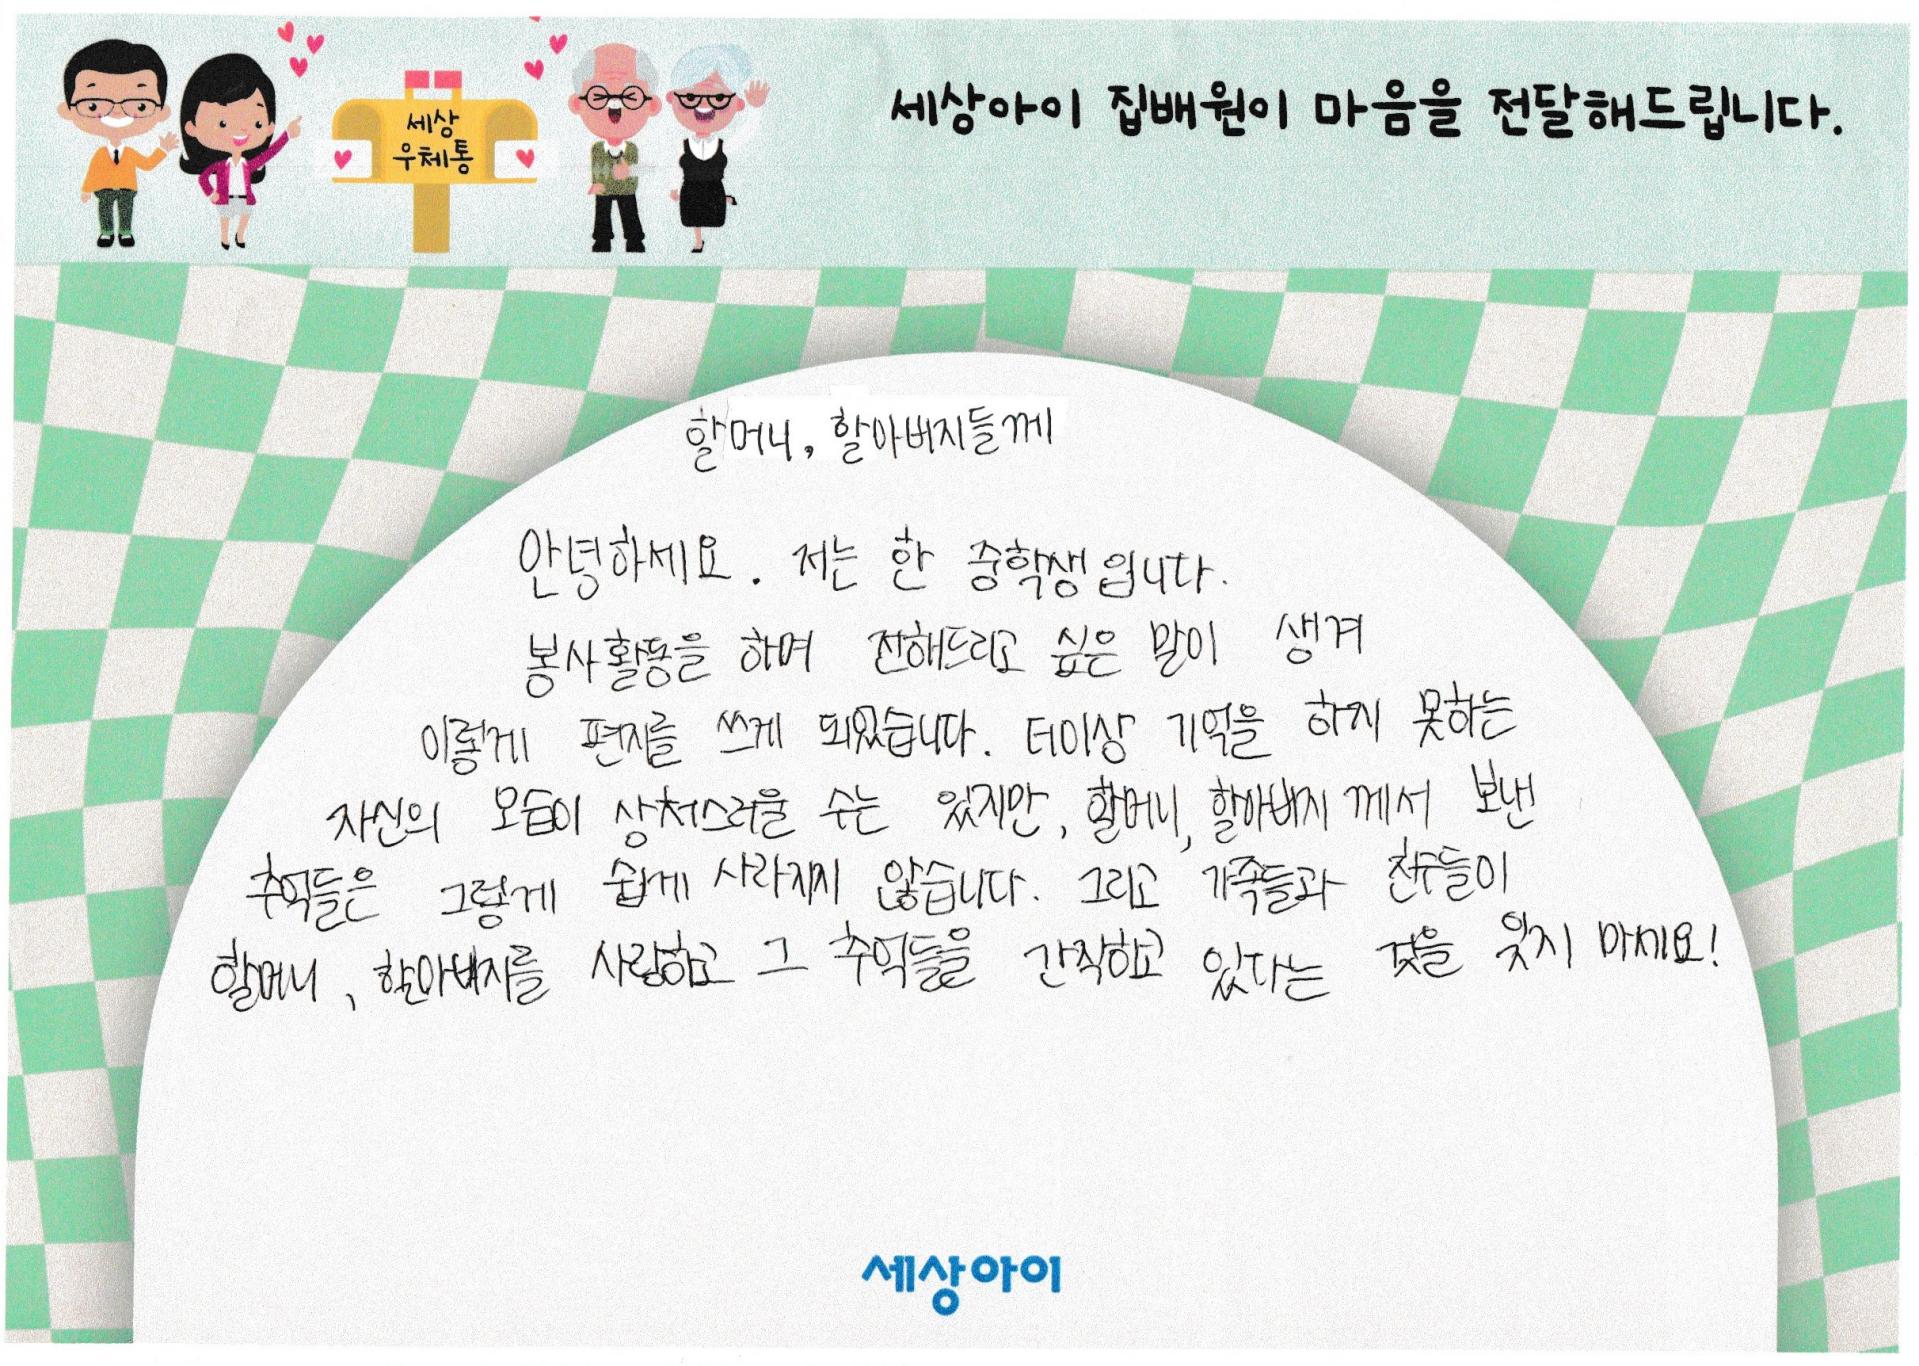 세상아이 집배원이 마음을 전달해드립니다.
세상
우체통
할머니, 할아버지들께
안녕하세요. 저는 한 중학생입니다.
봉사활동을 하며 전해드리고 싶은 말이 생겨
이렇게 편지를 쓰게 되었습니다. 더이상 기억을 하지 못하는
자신의 모습이 상처스러울 수는 있지만, 할머니, 할아버지께서 보낸
추억들은 그렇게 쉽게 사라지지 않습니다. 그리고 가족들과 친구들이
할머니, 할아버지를 사랑하고 그 추억들을 간직하고 있다는 것을 잊지 마세요!
세상아이